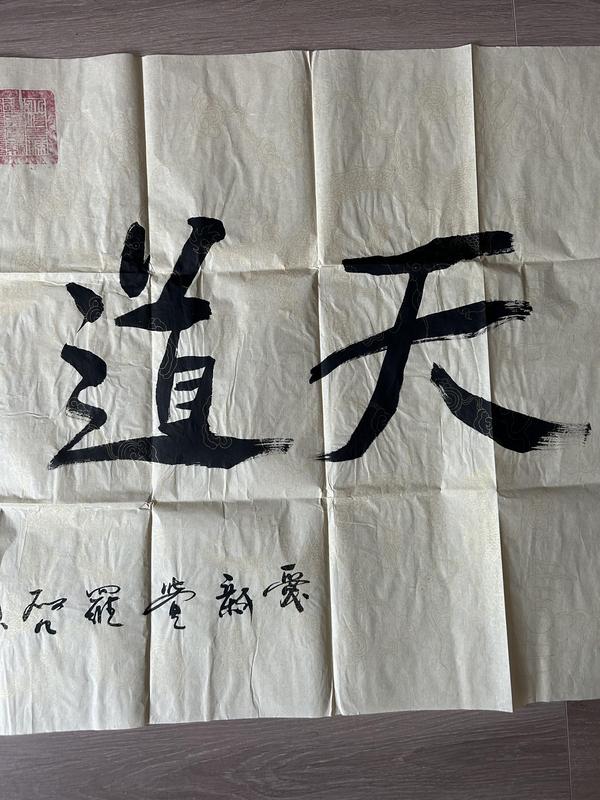 天道
愛新覺羅启